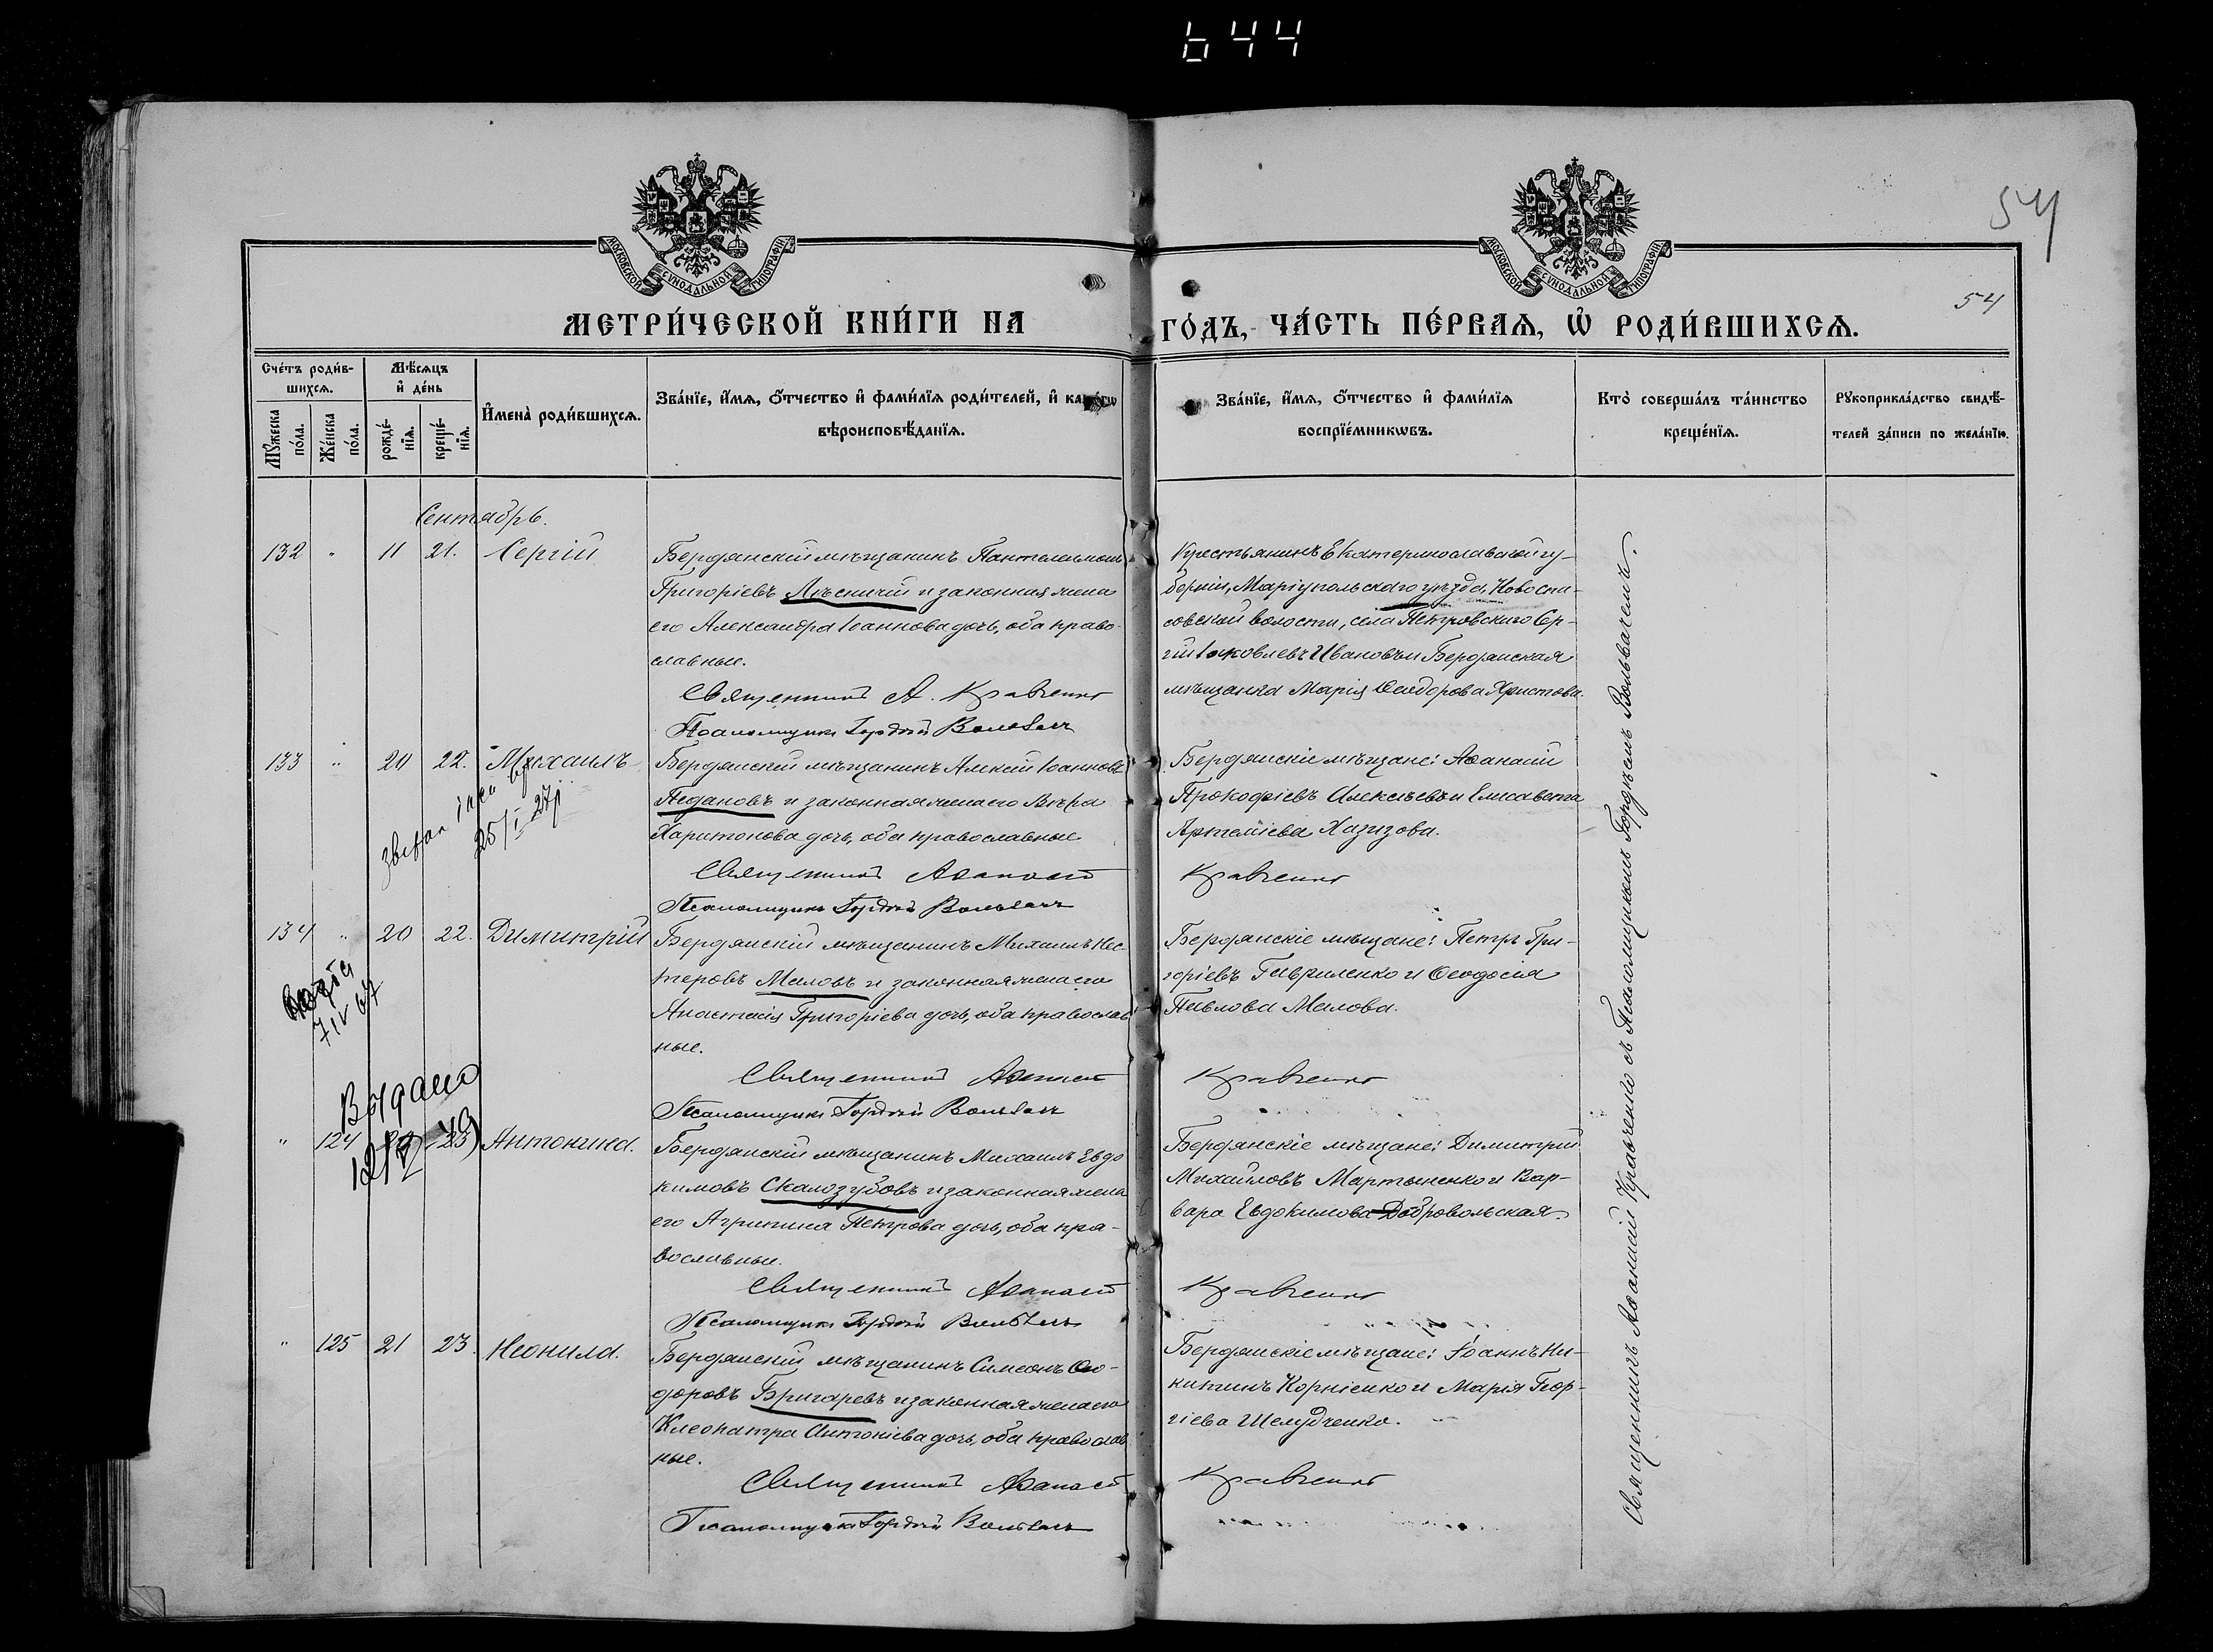 644
54
МОСКОВСКОЙ СѴНОДАЛЬНОЙ ТИПОГРАФІИ
МОСКОВСКОЙ СѴНОДАЛЬНОЙ ТИПОГРАФІИ
54
МЕТРИ́ЧЕСКОЙ КНИ́ГИ НА ГО́ДЪ, ЧА́СТЬ ПЕ́РВАѦ, Ѡ҆ РОДИ́ВШИХСѦ.
Сче́тъ роди́в-
шихсѧ.
Мꙋ́жеска по́ла.
Же́нска по́ла.
Мѣ́сѧцъ
и҆ де́нь
рожде́-
нїѧ.
креще́-
нїѧ.
И҆мена̀ роди́вшихсѧ.
Зва́нїе, и҆́мѧ, ѻ҆́тчество и҆ фами́лїѧ роди́телей, и҆
вѣроисповѣ́данїѧ.
Зва́нїе, и҆́мѧ, ѻ҆́тчество и҆ фами́лїѧ
воспрїе́мникѡвъ.
Кто̀ соверша́лъ та́инство
креще́нїѧ.
Рꙋкоприкла́дство свидѣ́-
телей за́писи по жела́нїю.
Сентябрь.
132 " 11 21. Сергій
Бердянскій мѣщанинъ Пантелеимонъ
Григоріевъ Лѣсничій и законная жена
его Александра Іоаннова дочь, оба право-
славные.
Священникъ А. Кравченко
Псаломщикъ Гордій Вольвачъ
Крестьянинъ Екатеринославской гу-
берніи, Маріупольскаго уѣзда, Новоспа-
совской волости, села Петровскаго Сер-
гій Іаковлевъ Ивановъ и Бердянская
мѣщанка Марія Ѳеодорова Христова.
133 " 20 22. Михаилъ
25/I 27
Бердянскій мѣщанинъ Алексій Іоанновъ
Педановъ и законная жена его Вѣра
Харитонова дочь, оба православные
Священникъ Аѳанасій Кравченко
Псаломщикъ Гордій Вольвачъ
Бердянскіе мѣщане: Аѳанасій
Прокофіевъ Алексѣевъ и Елисавета
Артеміева Хазизова.
134 " 20 22. Димитрій
7 IV 67
Бердянскій мѣщанинъ Михаилъ Нес-
теровъ Маловъ и законная жена его
Анастасія Григоріева дочь, оба православ
ные.
Священникъ Аѳанасій Кравченко
Псаломщикъ Гордій Вольвачъ
Бердянскіе мѣщане: Петръ Гри-
горіевъ Гавриленко и Ѳеодосія
Павлова Малова.
Выдано
" 124 23 Антонина.
Бердянскій мѣщанинъ Михаилъ Евдо
кимовъ Скалозубовъ и законная жена
его Агрипина Петрова дочь, оба пра-
вославные.
Священникъ Аѳанасій Кравченко
Псаломщикъ Гордій Вольвачъ
Бердянскіе мѣщане: Димитрій
Михайловъ Мартыненко и Вар-
вара Евдокимова Добровольская.
" 125 21 23. Неонила.
Бердянскій мѣщанинъ Симеонъ Ѳео-
доровъ Бригаревъ и законная жена его
Клеопатра Антоніева дочь, оба православ
ные.
Священникъ Аѳанасій Кравченко
Псаломщикъ Гордій Вольвачъ
Бердянскіе мѣщане: Іоаннъ Ни-
китинъ Корніенко и Марія Геор-
гіева Шелудченко.
Священникъ Аѳанасій Кравченко съ Псаломщикомъ Гордіемъ Вольвачемъ.